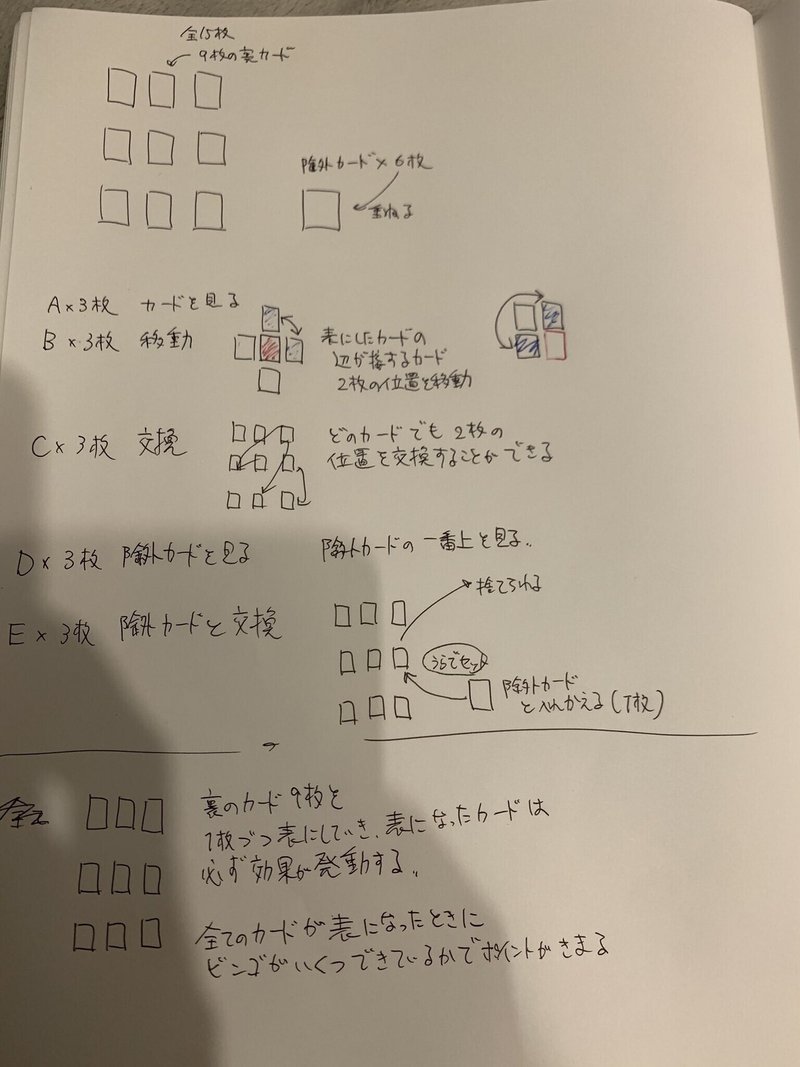 全15枚
9枚の裏カード
除外カード×6枚
重ねる
A×3枚 カードを見る
B×3枚 移動
表にしたカードの
辺が接するカード
2枚の位置を移動
C×3枚 交換
どのカードでも2枚の
位置を交換することができる
D×3枚 除外カードを見る
除外カードの一番上を見る..
E×3枚 除外カードと交換
捨てられる
うらでセット
除外カード
と入れかえる(1枚)
裏のカード9枚を
1枚づつ表にしていき、表になったカードは
必ず効果が発動する..
全てのカードが表になったときに
ビンゴがいくつできているかでポイントがきまる